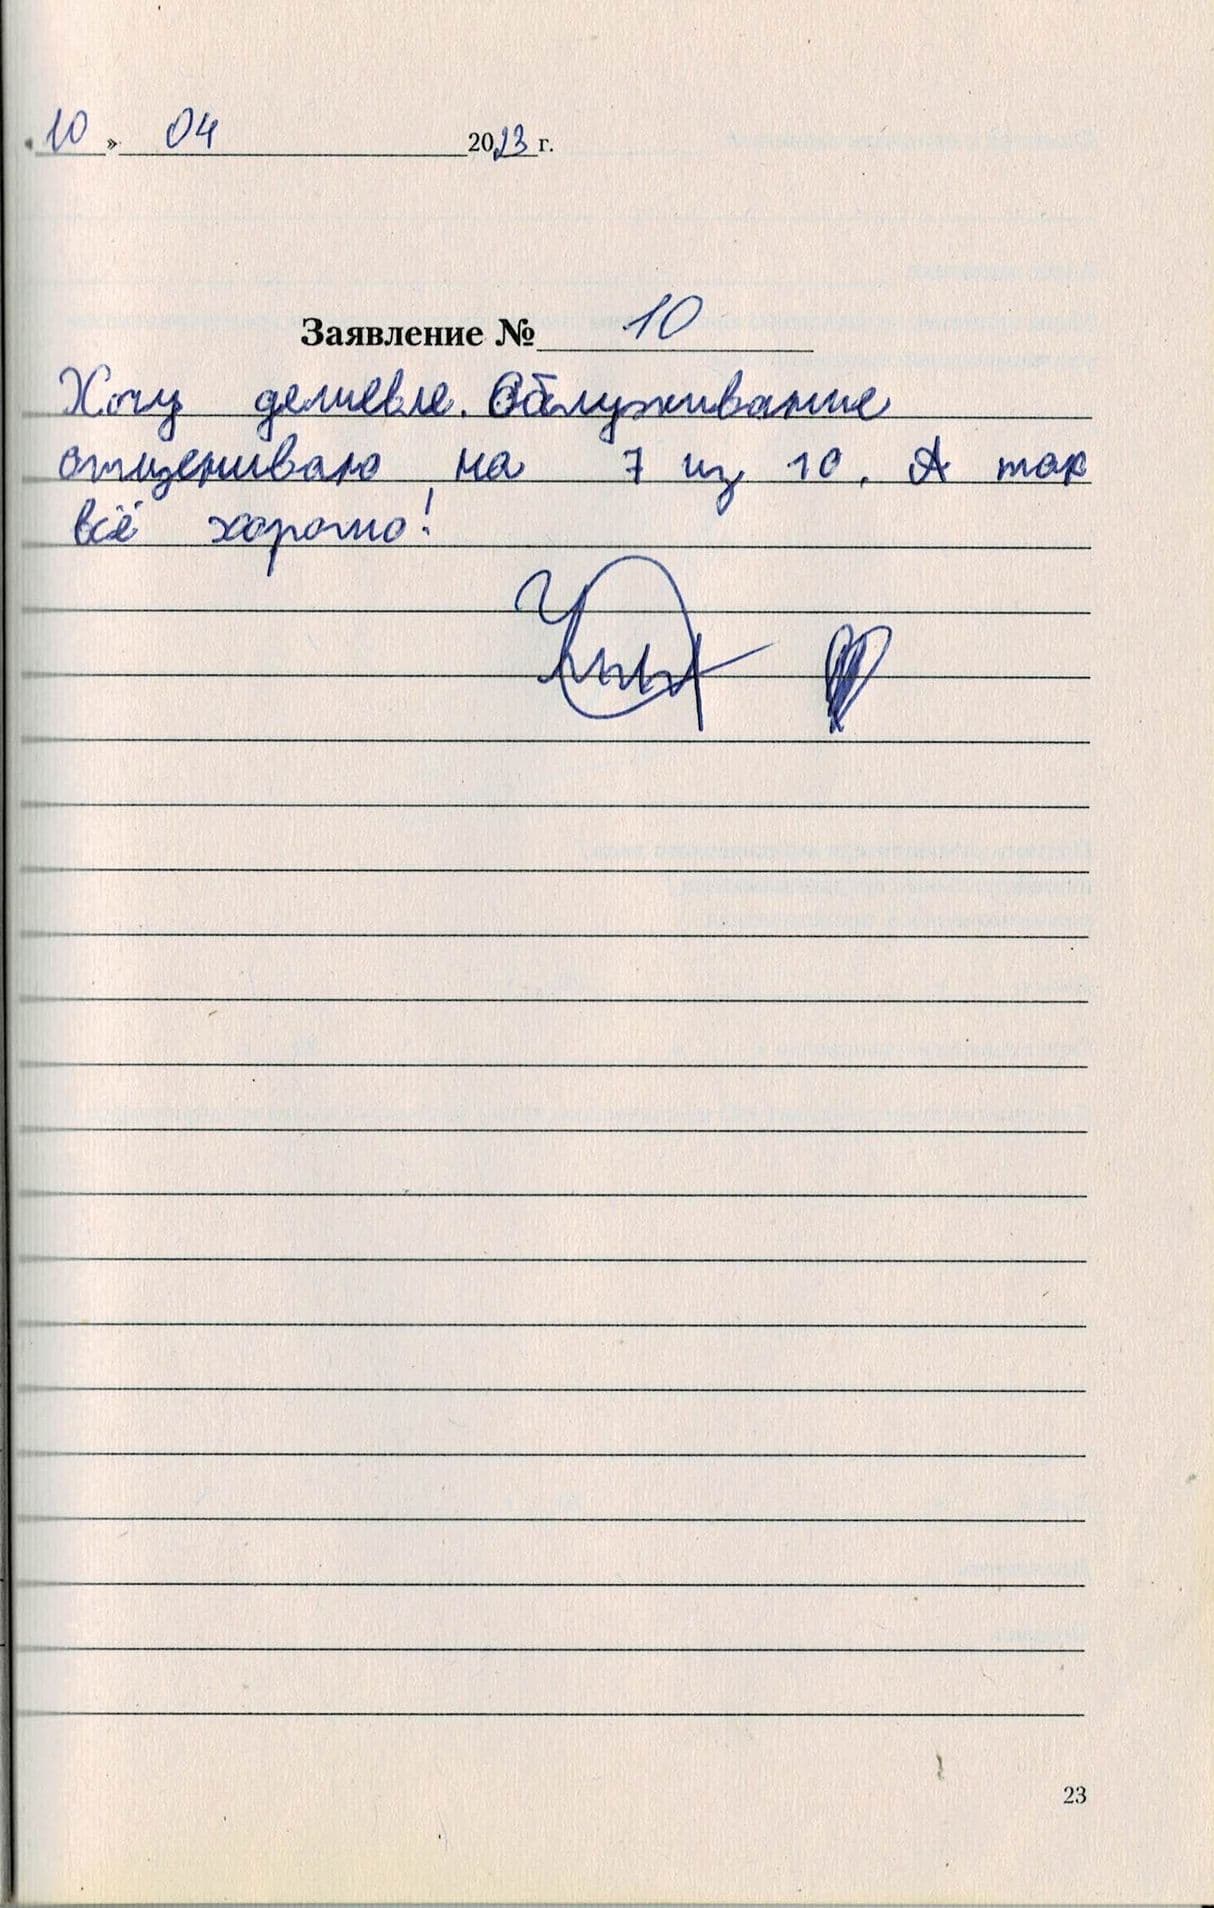 «10» 04 2023 г.
Заявление № 10
Хочу дешевле. Обслуживание
отщениваю на 7 из 10. А так
всё хорошо!
23